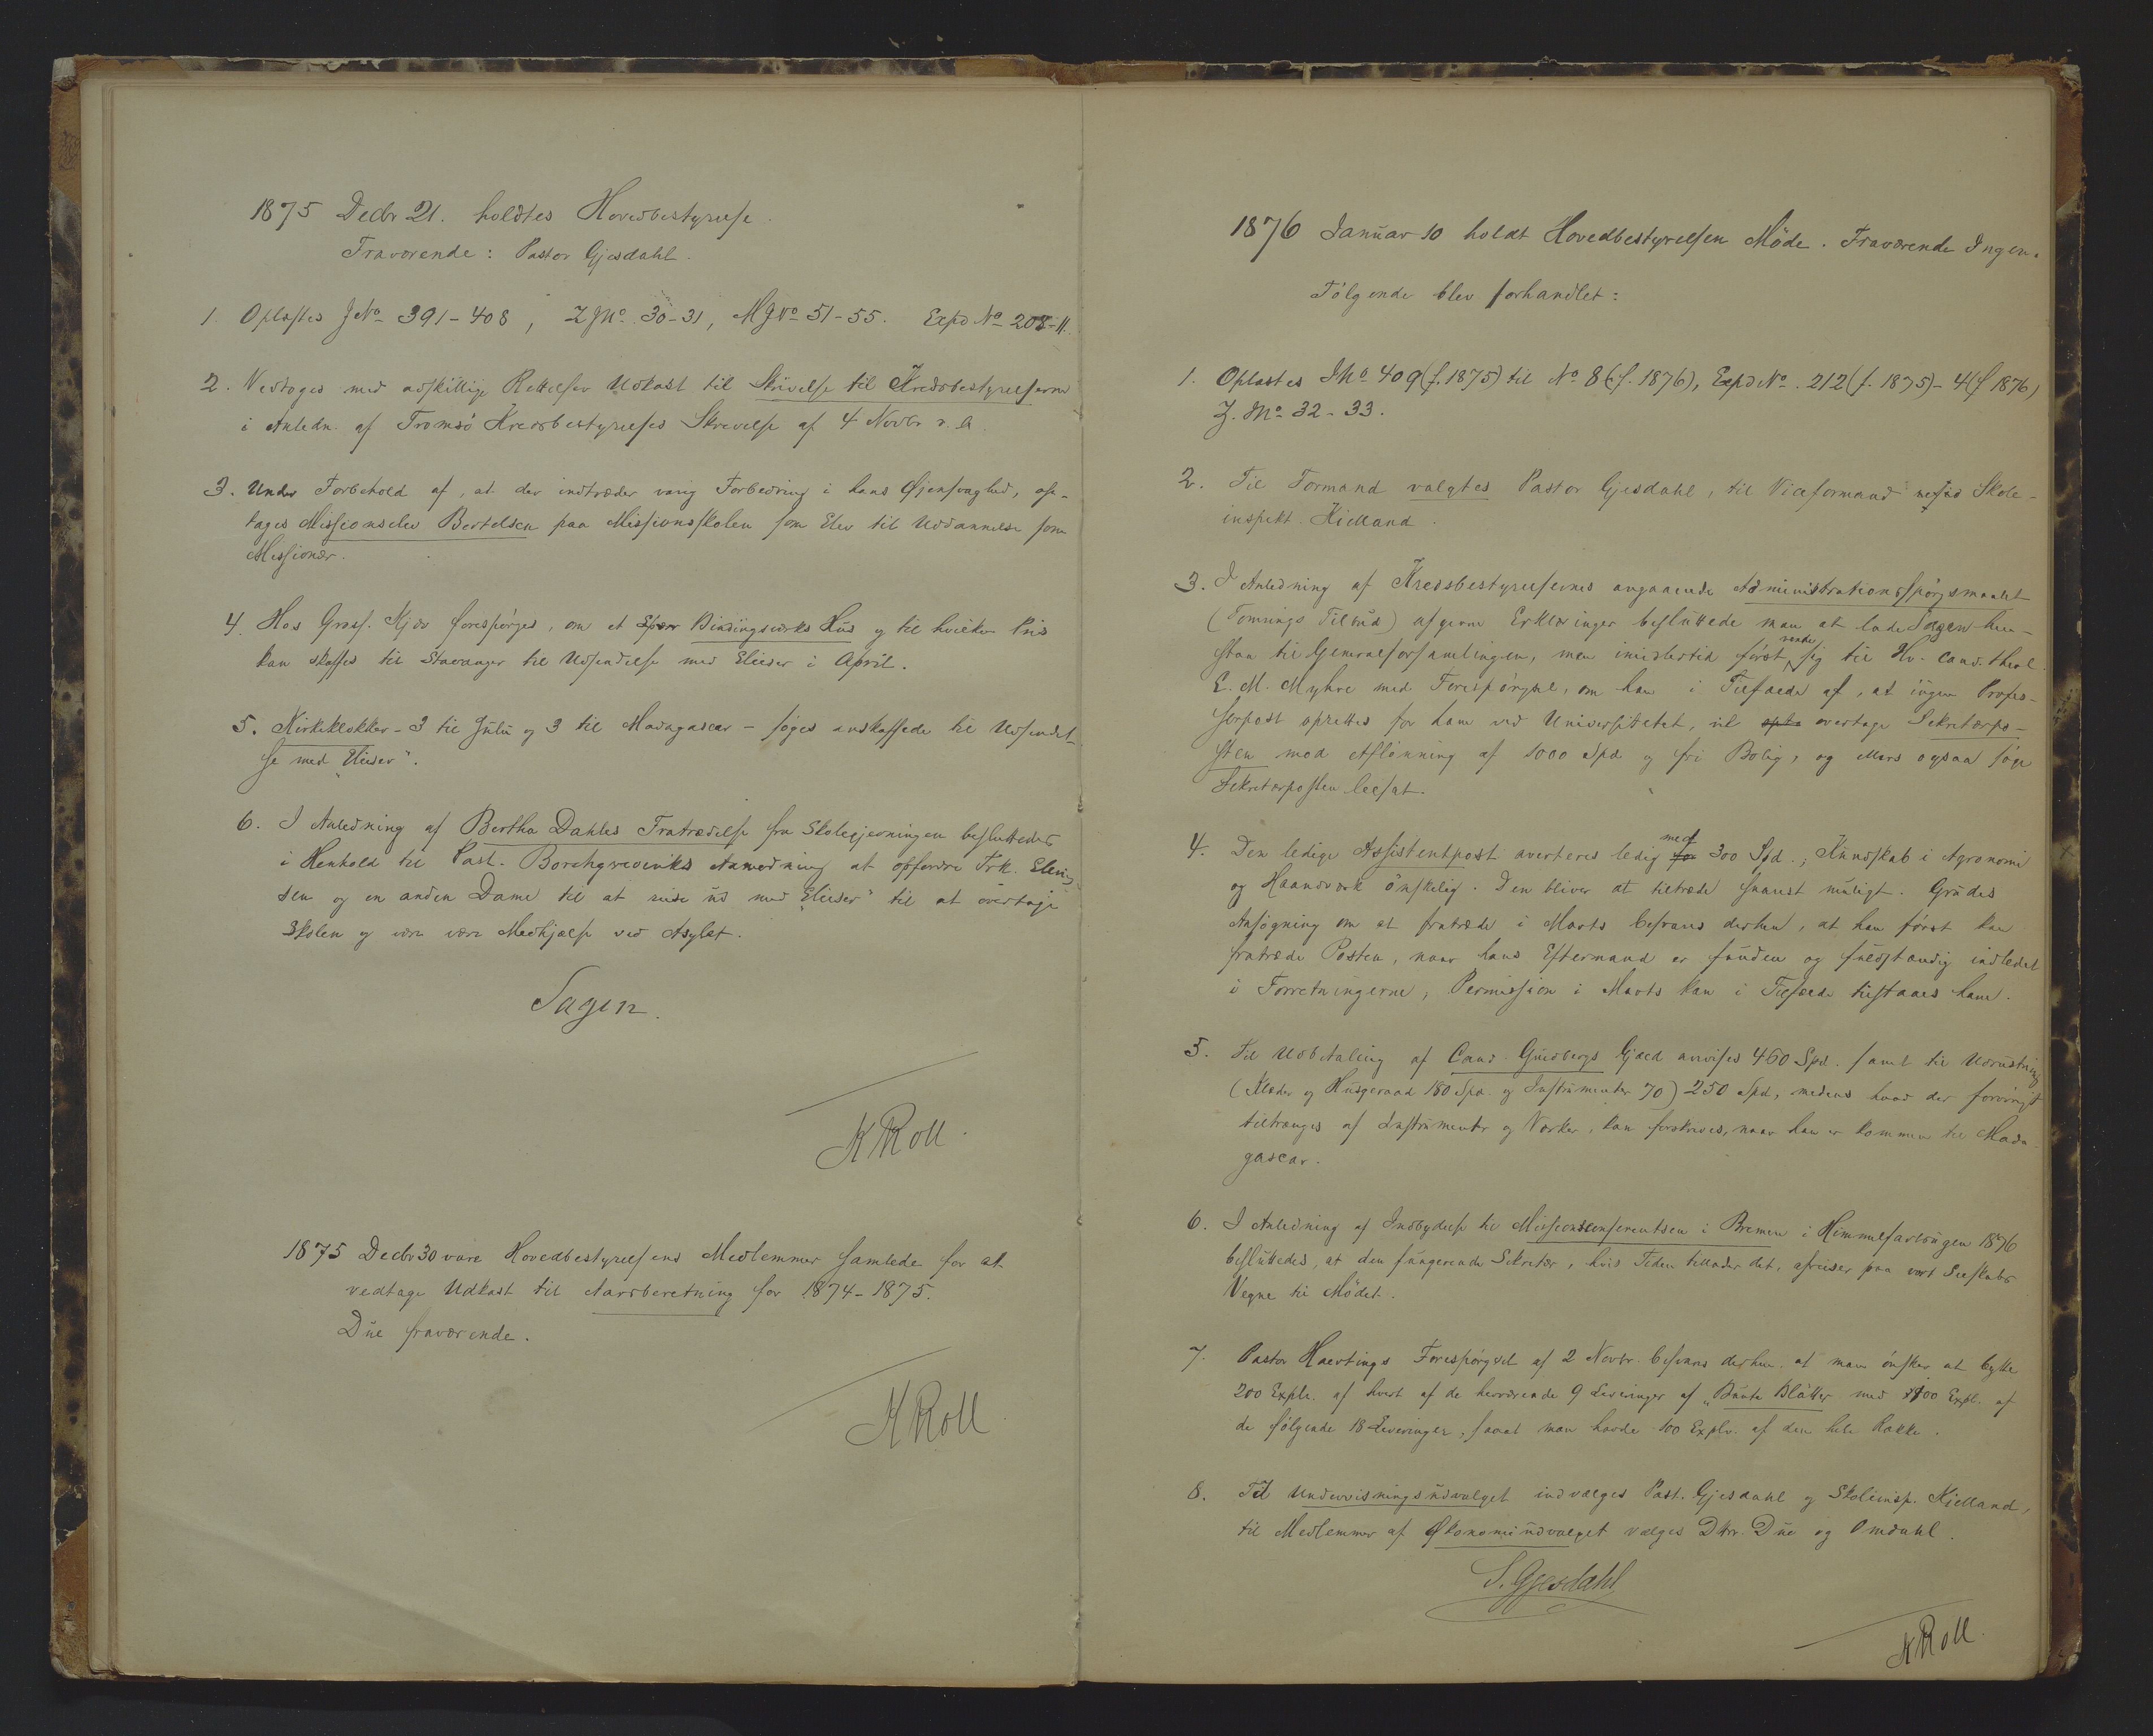 1875 Decbr 21. holdtes Hovedbestyrelse.
Fraværende: Pastor Gjesdahl.
1. Oplæstes JNo 391-408, ZJNo 30-31, MJNo 51-55. Expd No 208-11.
2. Vedtoges med adskillige Rettelser Udkast til Skrivelse til Kredsbestyrelserne
i Anledn. af Tromsö Kredsbestyrelses Skrivelse af 4 Novbr d. A.
3. Under Forbehold af, at der indtræder varig Forbedring i hans Øjensvaghed, op-
tages Missionselev Bertelsen paa Missionsskolen som Elev til Uddannelse som
Missionær.
4. Hos Gross. Kjær forespörges, om et Bindingsværks Hus og til hvilken Pris
kan skaffes til Stavanger til Udsendelse med Elieser i April.
5. Kirkeklokker - 3 til Zulu og 3 til Madagascar - søges anskaffede til Udsendel-
se med "Elieser".
6. I Anledning af Bertha Dahles Fratrædelse fra Skolegjerningen besluttedes
i Henhold til Past. Borchgrevinks Anmodning at opfordre Frk. Elling-
sen og en anden Dame til at reise ud med "Elieser" til at overtage
Skolen og være Medhjælp ved Asylet.
Sagen.
K Roll.
1875 Decbr 30 vare Hovedbestyrelsens Medlemmer samlede for at
vedtage Udkast til Aarsberetning for 1874-1875.
Due fraværende.
K Roll
1876 Januar 10 holdt Hovedbestyrelsen Möde. Fraværende Ingen.
Følgende blev forhandlet:
1. Oplæstes JNo 409 (f. 1875) til No 8 (f. 1876), Expd No. 212 (f. 1875) - 4 (f 1876)
Z. JNo 32-33.
2. Til Formand valgtes Pastor Gjesdahl, til Viceformand Skole-
inspekt. Kielland.
3. I Anledning af Kredsbestyrelsernes angaaende Administrationsspörgsmaalet
(Tomnings Tilbud) afgivne Erklæringer besluttede man at lade Sagen hen-
staa til Generalforsamlingen, men imidlertid först vende sig til Hr. Cand. theol.
E. M. Myhre med Forespörgsel, om han i Tilfælde af, at ingen Profes-
sorpost oprettes for ham ved Universitetet, vil overtage Sekretærpo-
sten med Aflönning af 1000 Spd og fri Bolig, og ellers ogsaa söge
Sekretærposten besat.
4. Den ledige Assistentpost averteres ledig med 300 Spd.; Kundskab i Agronomi
og Haandværk önskelig. Den bliver at tiltræde snarest muligt. Grudes
Ansögning om at fratræde i Marts besvares derhen, at han först kan
fratræde Posten, naar hans Eftermand er funden og fuldstændig indledet
i Forretningerne; Permission i Marts kan i Tilfælde tilstaaes ham.
5. Til Udbetaling af Cand. Guldbergs Gjæld anvises 460 Spd. samt til Udrustning
(Klæder og Husgeraad 180 Spd. og Instrumenter 70) 250 Spd, medens hvad der forövrigt
tiltrænges af Instrumenter og Værker, kan forskrives, naar han er kommen til Mada-
gascar.
6. I Anledning af Indbydelse til Missionsconferentsen i Bremen i Himmelfartsugen 1876
besluttedes, at den fungerende Sekretær, hvis Tiden tillader det, afreiser paa vort Selskabs
Vegne til Mödet.
7. Pastor Haertings Forespörgsel af 2 Novbr. besvares derhen at man önsker at bytte
200 Explr. af hvert af de herværende 9 Leveringer af "Bunte Blätter" med 100 Expl. af
de følgende 18 Leveringer, saaat man havde 100 Explr. af den hele Række.
8. Til Undervisningsudvalget indvælges Past. Gjesdahl og Skoleinsp. Kielland,
til Medlemmer af Økonomiudvalget vælges DHrr. Due og Omdahl.
S. Gjesdahl
K Roll